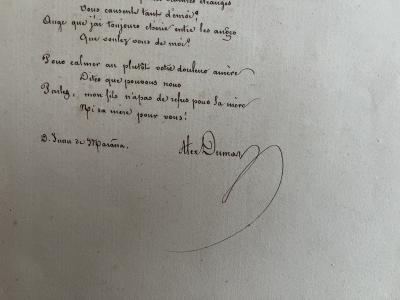 étranges
Vous causent tant d'émoi?
Ange que j'ai toujours choisie entre les anges
Que voulez vous de moi?
Pour calmer au plutôt votre douleur amère
Dites que pouvons nous
Parlez, mon fils n'a pas de refus pour sa mère
Ni sa mère pour vous!
D. Juan de Maraña.
Alex Dumas